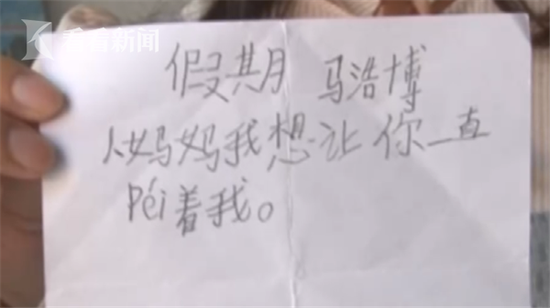 看看新闻
假期 马浩博
妈妈我想让你一直
Péi着我。